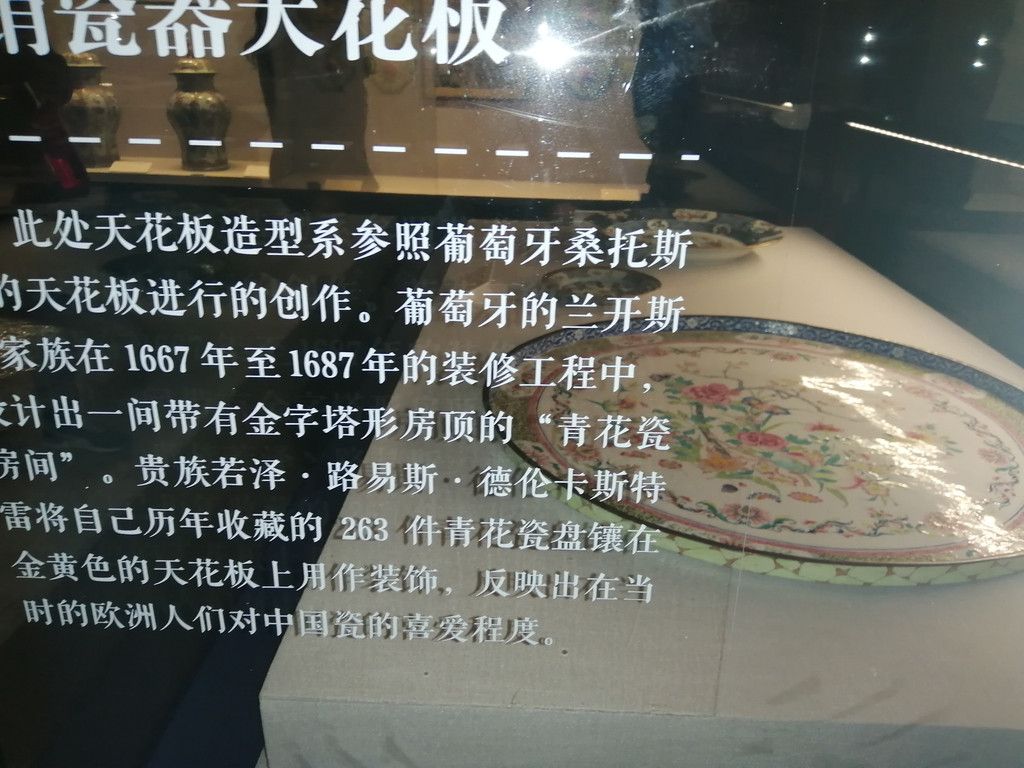 销瓷器天花板
此处天花板造型系参照葡萄牙桑托斯
的天花板进行的创作。葡萄牙的兰开斯
家族在 1667 年至 1687 年的装修工程中，
设计出一间带有金字塔形房顶的“青花瓷
房间”。贵族若泽·路易斯·德伦卡斯特
雷将自己历年收藏的 263 件青花瓷盘镶在
金黄色的天花板上用作装饰，反映出在当
时的欧洲人们对中国瓷的喜爱程度。